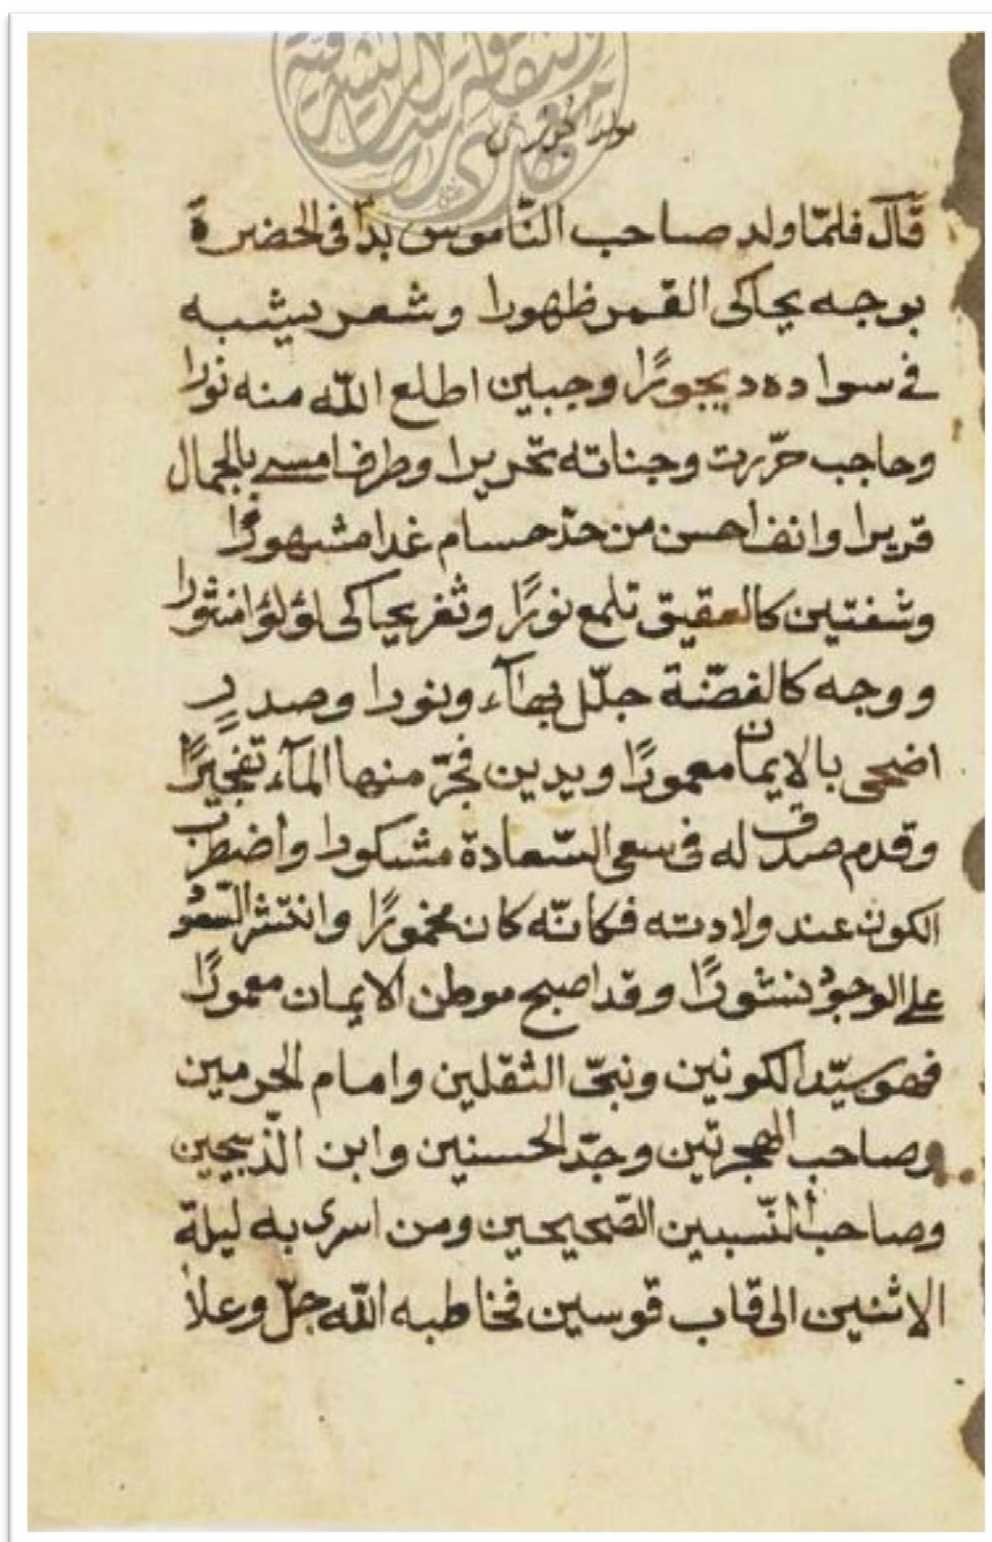 مولد الجوزي
قال فلمّا ولد صاحب النّاموس بدا فى الحضرة
بوجه يحاكى القمر ظهورا وشعر يشبه
في سواده ديجورًا وجبين اطلع اللّه منه نورا
وحاجب حرّرت وجناته تحريرا وطرف امسے بالجمال
قريرا وانف احسن من حدّ حسام غدا مشهورًا
وشفتين كالعقيق تلمع نورًا وثغر يحاكى لؤلؤا منثورا
ووجه كالفضّة جلّل بهآء ونورا وصدرٍ
اضحى بالايمان معمورًا ويدين فجّر منها المآء تفجيرًا
وقدم صدق له فى سعى السّعادة مشكورا واضطرب
الكون عند ولادته فكانّه كان مخمورًا وانتشر السّعود
على الوجود نشورًا وقد اصبح موطن الايمان معمورًا
فهو سيّد الكونين ونبىّ الثقلين وامام الحرمين
وصاحب الهجرتين وجدّ الحسنين وابن الذّبيحين
وصاحب النّسبين الصّحيحين ومن اسرى به ليلة
الاثنين الى قاب قوسين فخاطبه اللّه جلّ وعلا